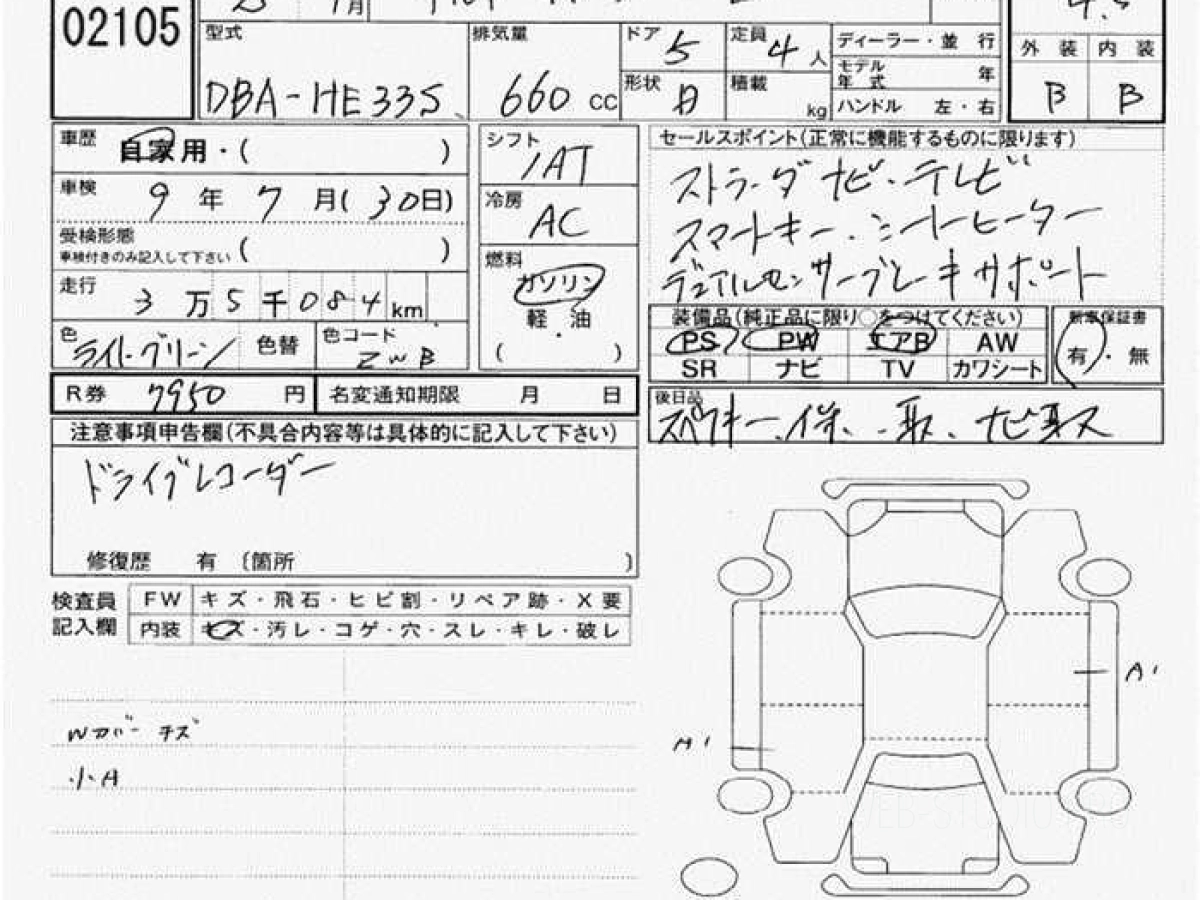 02105
月
型式 DBA-HE33S
排気量 660 cc
ドア 5
定員 4 人
形状
積載 kg
ディーラー・並 行
モデル年式 年
ハンドル 左・右
外 装 内 装
B B
車歴 自家用・( )
車検 9 年 7 月(30日)
受検形態
車検付きのみ記入して下さい ( )
走行 3 万 5 千 084 km
色 ライトグリーン 色替 色コード ZWB
シフト IAT
冷房 AC
燃料 ガソリン
軽・油
( )
セールスポイント(正常に機能するものに限ります)
ストラーダナビ・テレビ
スマートキー・シートヒーター
デュアルセンサーブレーキサポート
装備品(純正品に限り○をつけてください)
PS PW エアB AW
SR ナビ TV カワシート
新車保証書
有・無
R券 7950 円 名変通知期限 月 日
後日品
スペアキー、保、取、ナビ取
注意事項申告欄(不具合内容等は具体的に記入して下さい)
ドライブレコーダー
修復歴 有 〔箇所 〕
検査員記入欄
FW キズ・飛石・ヒビ割・リペア跡・X要
内装 キズ・汚レ・コゲ・穴・スレ・キレ・破レ
Wカバー キズ
小A
A1
A1